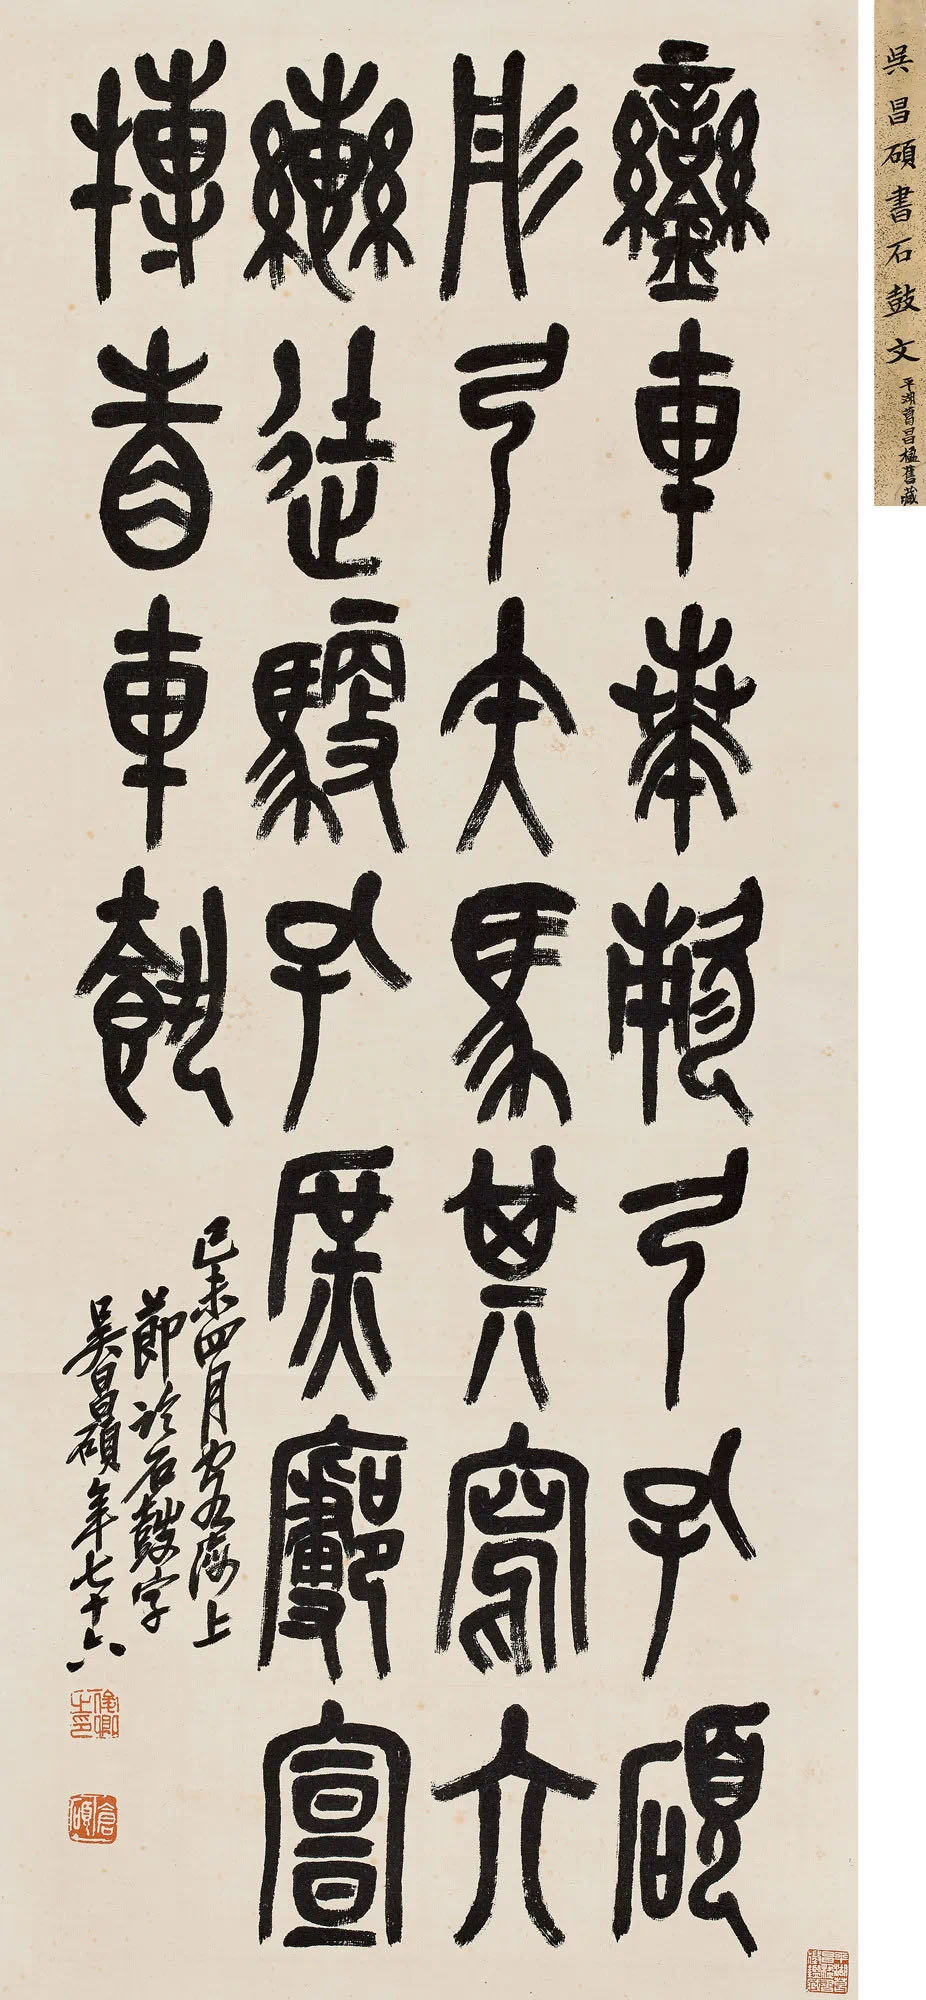 吳昌碩書石鼓文
平湖葛昌楹舊藏
鑾車𠦪欶弓孔碩
彤弓矢馬其寫六
轡徒馭孔庶廓宣
搏眚車𩛥
己未四月海上
節臨石鼓字
吳昌碩年七十六
俊卿之印
倉碩